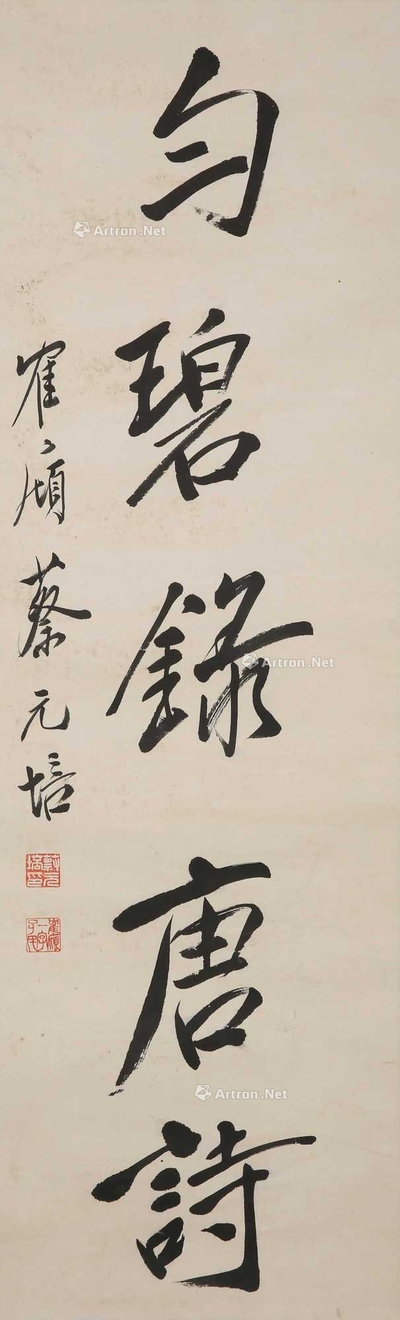 勻碧錄唐詩
隺廎蔡元培
蔡元培印
Artron.Net
Artron.Net
Artron.Net